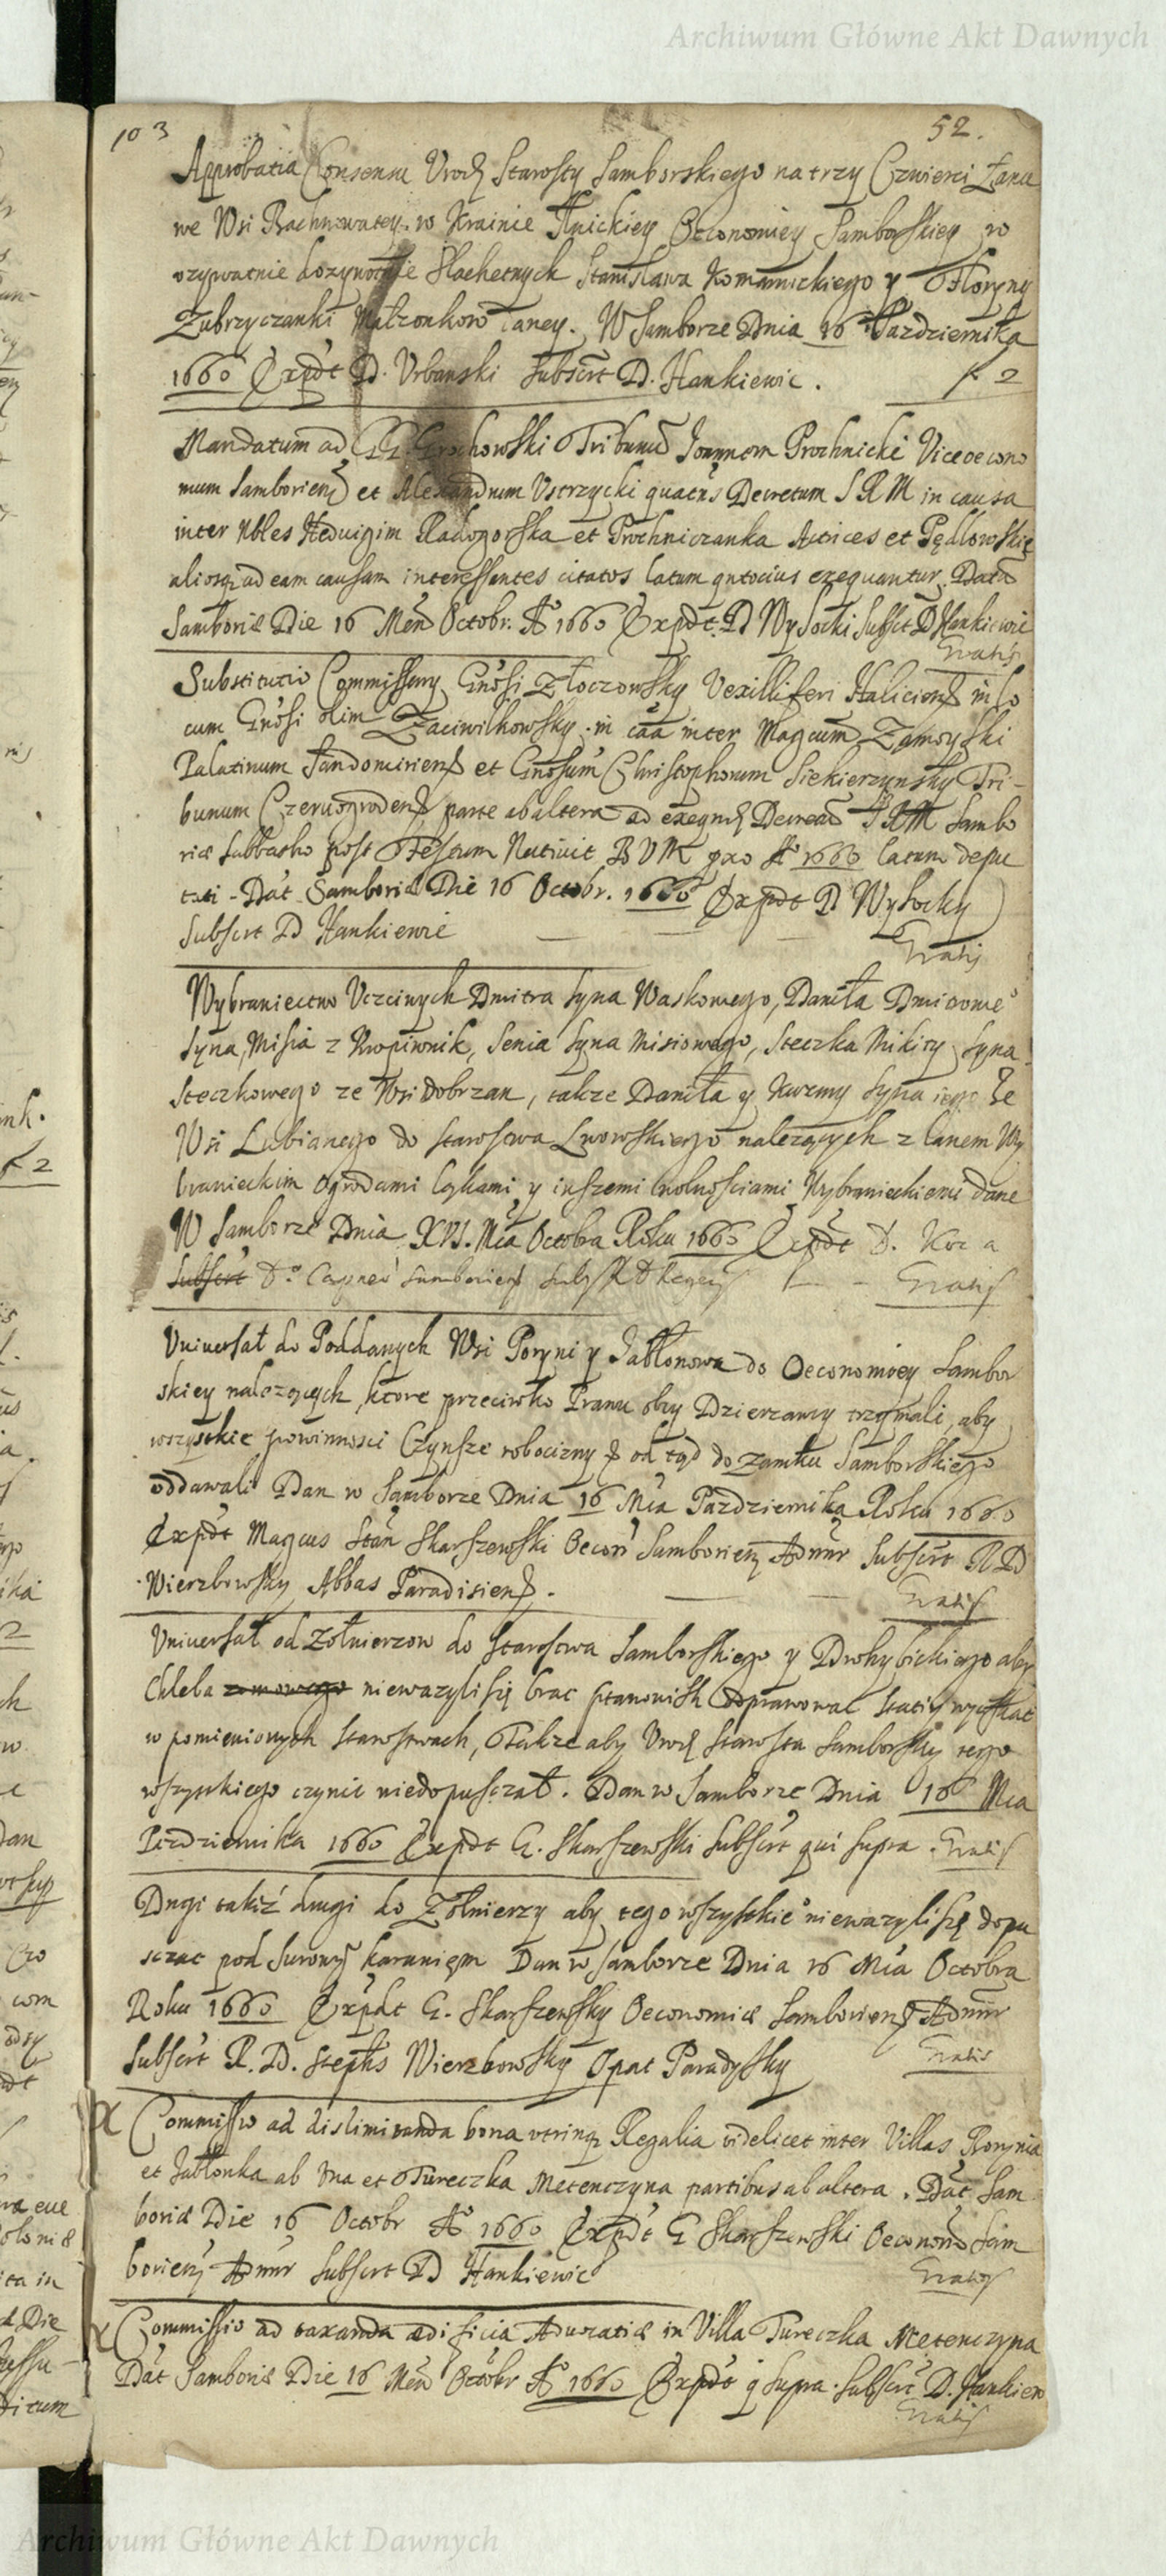 Archiwum Główne Akt Dawnych
103 52.
Approbatia Consensu Urodz Starosty Samborskiego na trzy Czwierci Łanu
we Wsi Rachnowatey w Krainie Ilnickiey Oeconomiey Samborskiey w
uzywanie dozywotnie Slachetnych Stanisława Komarnickiego y Floryny
Zubrzyczanki Małzonkow Daney. W Samborze Dnia 16 Pazdziernika
1660 Expdt D. Urbanski Subscrt D. Hankiewic. f 2
Mandatum ad GG. Grochowski Tribunũ Joannem Prochnicki Viceoecono
mum Samborienẽ et Alexandrum Ustrzycki quatus Decretum S R M in causa
inter Nbles Hedvigim Radogorska et Prochniczanka Actrices et Pędlowskie
aliosq ad eam causam interessentes citatos latum qntocius exequantur. Datũ
Samboriæ Die 16 Men Octobr. Ao 1660 Expdt. D Wysocki Subsct D Hankiewic
Gratis
Substitutio Commissary Gnosi Złoczowsky Vexilliferi Haliciens in lo
cum Gnosi olim Zaciwilkowsky in caa inter Magcum Zamoyski
Palatinum Sandomiriens et Gnosum Christophorum Siekierzynsky Tri-
bunum Czerwogrodens parte ab altera ad exeqnd Decretũ S R M Sambo
riæ Sabbatho post Festum Nativit B V M pro Ao 1660 latum depu
tati - Dat Samboriæ Die 16 Octobr. 1660 Expdt D Wysocky
Subscrt D Hankiewic
Gratis
Wybraniectwo Uczciwych Dmitra syna Waskowego, Daniła Dmitrowe°
Syna, Misia z Kropiwnik, Senia Syna Misiowego, Steczka Mikity Syna
Steczkowego ze Wsi Dobrzan, takze Daniła y Kuzmy Syna iego Ze
Wsi Lubianego do Starostwa Lwowskiego nalezących z lanem Wy
branieckim Ogrodami Łąkami y inszemi wolnosciami Wybranieckiemi dane
W Samborze Dnia XVI. Mca Octobra Roku 1660 Expdt D. Koc a
Subscrt D° Samboriens Gratis
Uniwersał do Poddanych Wsi Poryni y Jabłonowa do Oeconomiey Sambor
skiey nalezących, ktore przeciwko Prawu obzy Dzierzawcy trzymali, aby
wszystkie powinnosci Czynsze robocizny & od tąd do zamku Samborskiego
oddawali Dan w Samborze Dnia 16 Mca Pazdziernika Roku 1660
Expdt Magcus Stan Skarszewski Oecon Samboriens Admr Subscrt R D
Wierzbowsky Abbas Paradisiens.
Gratis
Uniwersał od Zołnierzow do Starostwa Samborskiego y Drohybickiego aby
Chleba niewazyli się brac stanowisk odprawowac statiy wyciskac
w pomienionych Starostwach, Takze aby Urodz Starosta Samborsky tego
wszystkiego czynic niedopusczał. Dan w Samborze Dnia 16 Mca
Pazdziernika 1660 Expdt G. Skarszewski Subscrt qui supra. Gratis
Drugi takiz drugi do Zołnierzy aby tego wszystkie° niewazyli się dopu
sczac pod surowym karaniem Dan w Samborze Dnia 16 Mca Octobra
Roku 1660 Expdt G. Skarszewsky Oeconomiæ Samboriens Admr
Subscrt R. D. Stephs Wierzbowsky Opat Paradysky Gratis
Commissio ad dislimitanda bona utrinq Regalia videlicet inter Villas Rorynia
et Jabłonka ab una et Tureczka Metenczyna partibus ab altera. Dat Sam
boriæ Die 16 Octobr Ao 1660 Expdt G Skarszewski Oeconom Sam
boriens Admr Subscrt D Hankiewic
Gratis
Commissio ad taxanda ædificia Advocatiæ in Villa Tureczka Metenczyna
Dat Samboriæ Die 16 Men Octobr Ao 1660 Expdt q supra. Subscrt D. Hankiew
Gratis
Archiwum Główne Akt Dawnych